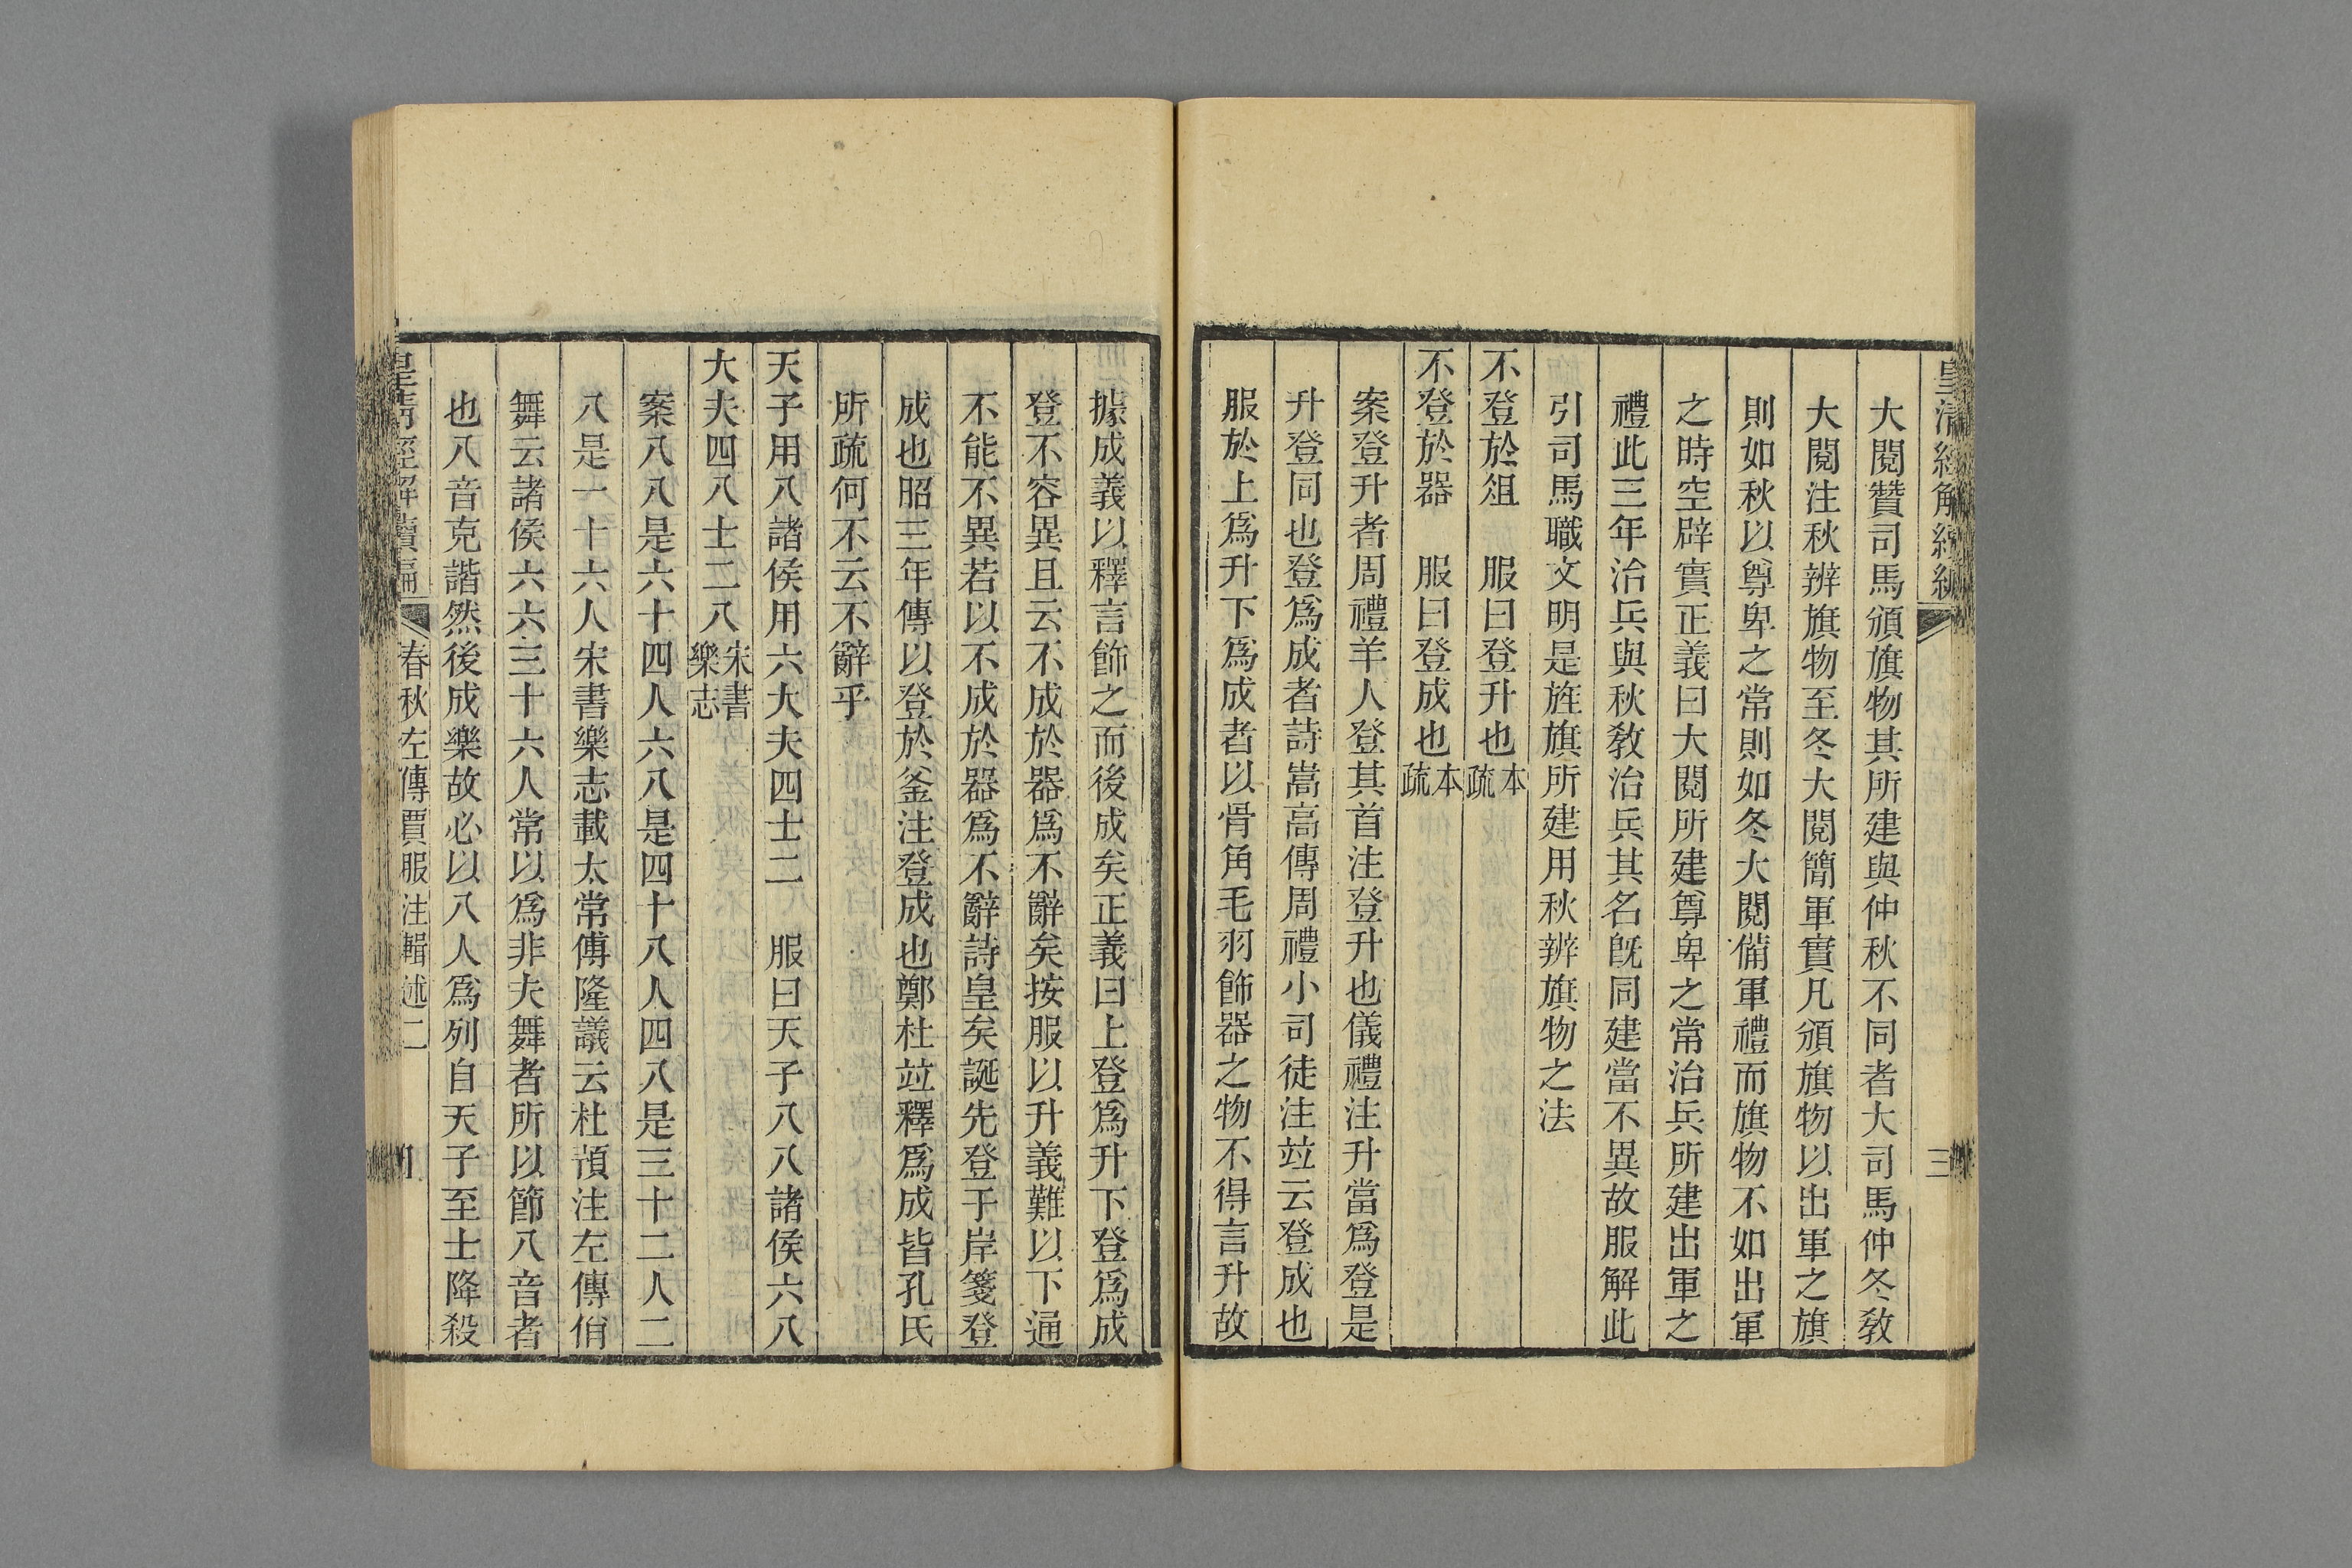 大閱贊司馬頒旗物其所建與仲秋不同者大司馬仲冬敎
大閱注秋辨旗物至冬大閱簡軍實凡頒旗物以出軍之旗
則如秋以尊卑之常則如冬大閱備軍禮而旗物不如出軍
之時空辟實正義曰大閱所建尊卑之常治兵所建出軍之
禮此三年治兵與秋敎治兵其名旣同建當不異故服解此
引司馬職文明是旌旗所建用秋辨旗物之法
不登於俎　服曰登升也本疏
不登於器　服曰登成也本疏
案登升者周禮羊人登其首注登升也儀禮注升當爲登是
升登同也登爲成者詩嵩高傳周禮小司徒注竝云登成也
服於上爲升下爲成者以骨角毛羽飾器之物不得言升故
據成義以釋言飾之而後成矣正義曰上登爲升下登爲成
登不容異且云不成於器爲不辭矣按服以升義難以下通
不能不異若以不成於器爲不辭詩皇矣誕先登于岸箋登
成也昭三年傳以登於釜注登成也鄭杜竝釋爲成皆孔氏
所疏何不云不辭乎
天子用八諸侯用六大夫四士二　服曰天子八八諸侯六八
大夫四八士二八宋書樂志
案八八是六十四人六八是四十八人四八是三十二人二
八是一十六人宋書樂志載太常傅隆議云杜預注左傳佾
舞云諸侯六六三十六人常以爲非夫舞者所以節八音者
也八音克諧然後成樂故必以八人爲列自天子至士降殺
皇清經解續編　春秋左傳賈服注輯述二